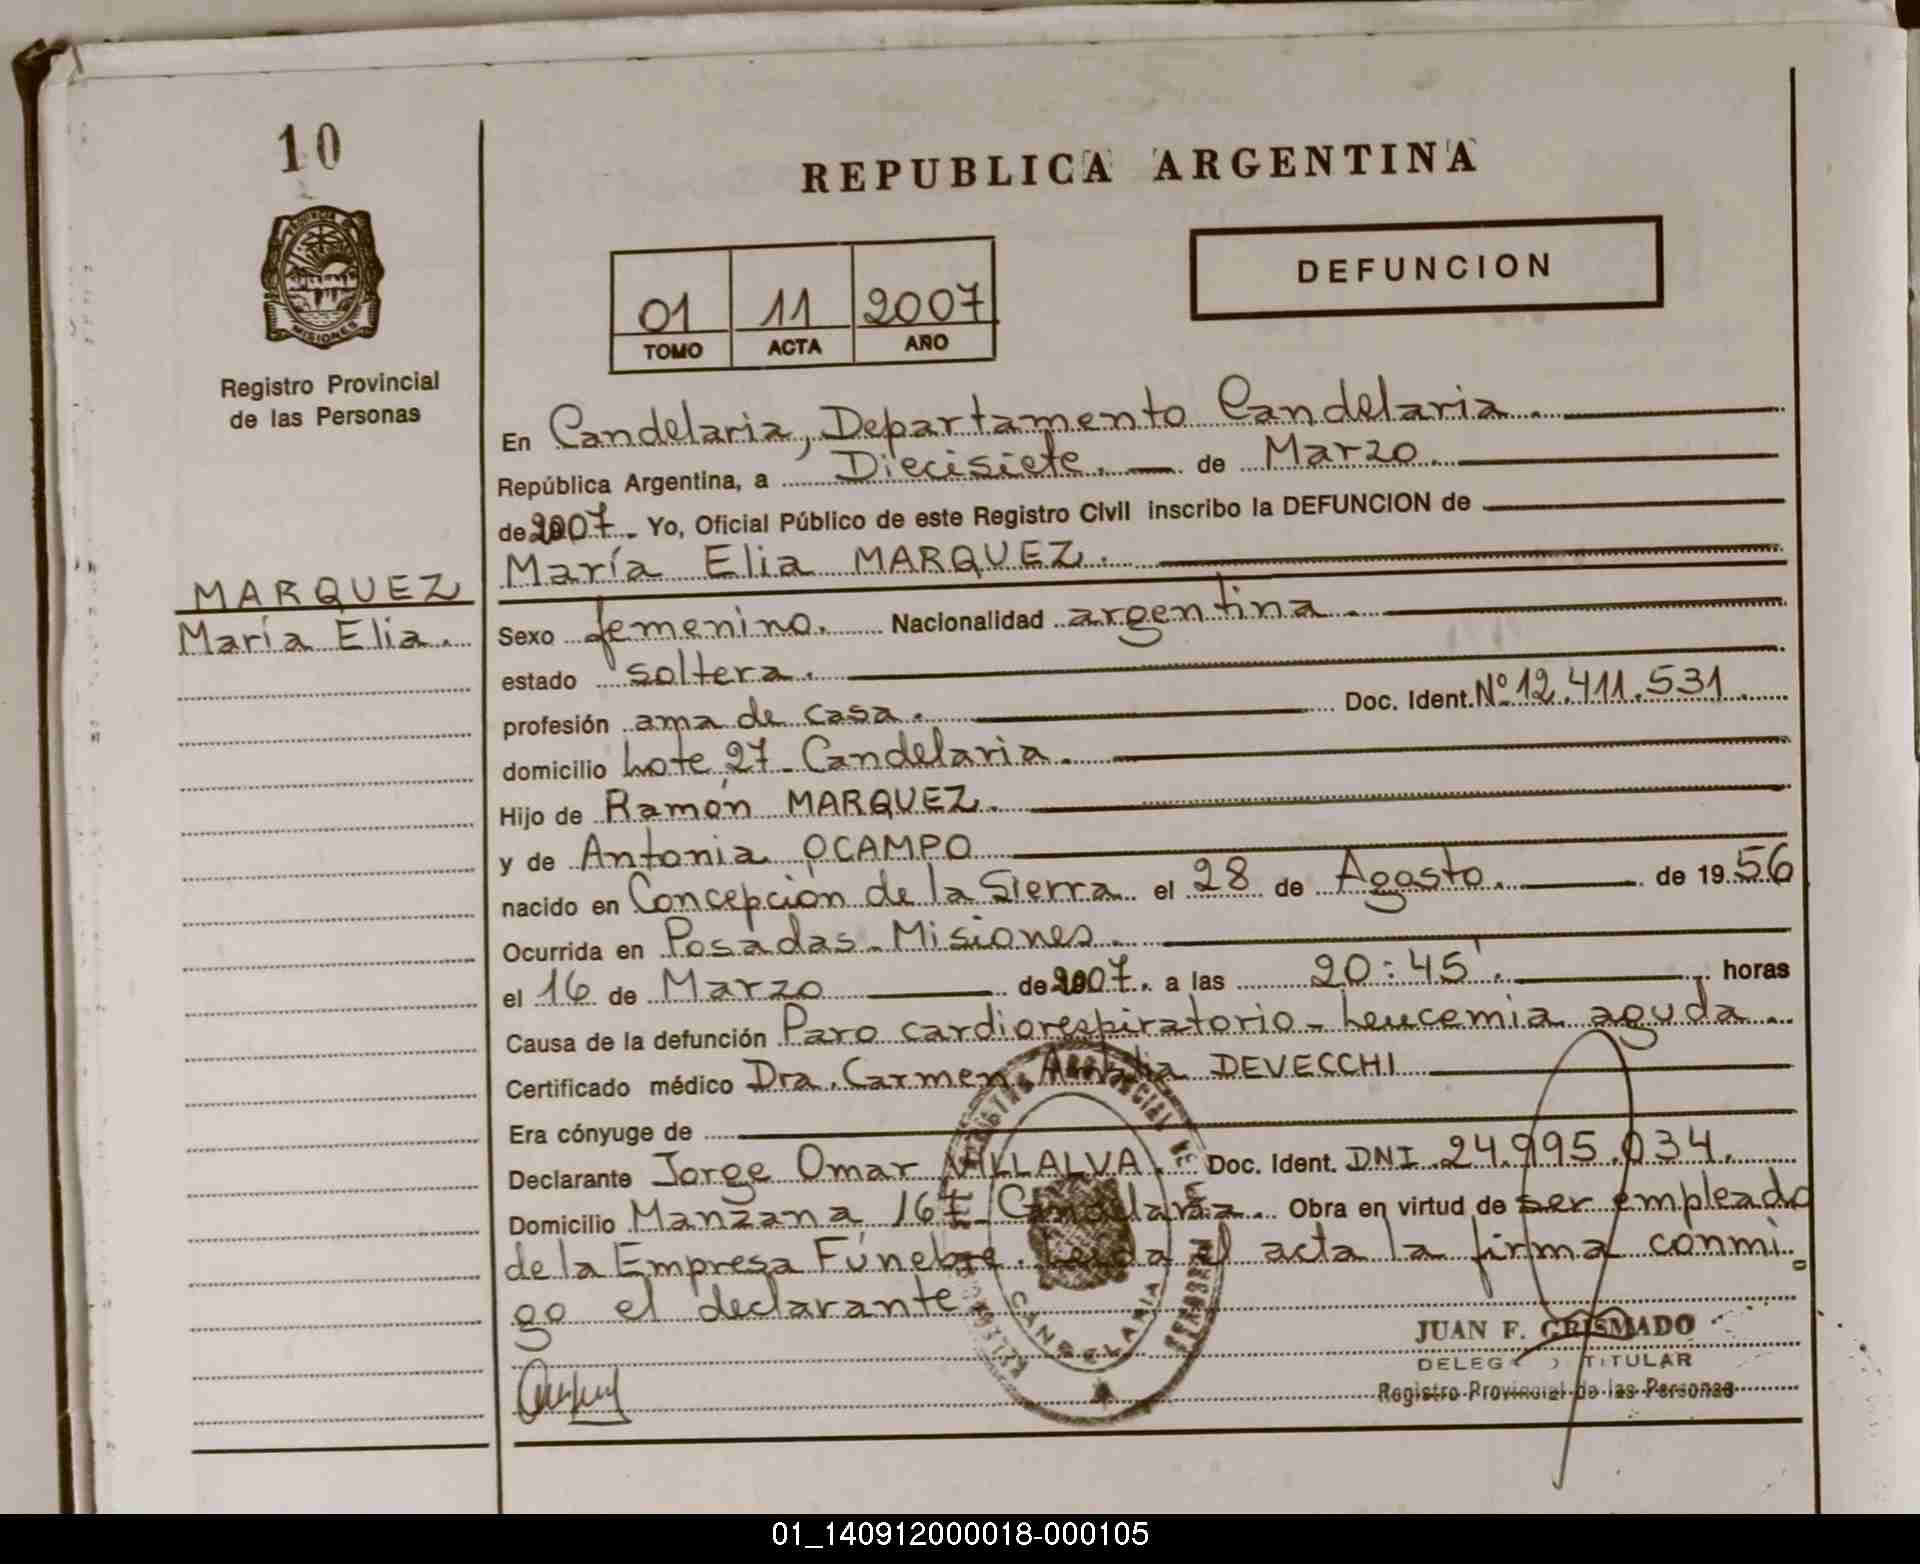 10
MISIONES
Registro Provincial
de las Personas
MARQUEZ
María Elia.
REPUBLICA ARGENTINA
01 11 2007
TOMO ACTA AÑO
DEFUNCION
En Candelaria, Departamento Candelaria.
República Argentina, a Diecisiete. de Marzo.
de 2007. Yo, Oficial Público de este Registro Civil inscribo la DEFUNCION de
María Elia MARQUEZ.
Sexo femenino. Nacionalidad argentina.
estado soltera.
profesión ama de casa. Doc. Ident. Nº 12.411.531
domicilio Lote 27- Candelaria.
Hijo de Ramón MARQUEZ.
y de Antonia OCAMPO
nacido en Concepción de la Sierra. el 28 de Agosto. de 1956
Ocurrida en Posadas- Misiones
el 16 de Marzo de 2007. a las 20:45'. horas
Causa de la defunción Paro cardiorespiratorio- Leucemia aguda.
Certificado médico Dra. Carmen DEVECCHI
Era cónyuge de
Declarante Jorge Omar VILLALVA. Doc. Ident. DNI 24.995.034.
Domicilio Manzana 167- Candelaria. Obra en virtud de ser empleado
de la Empresa Fúnebre. Leída el acta la firma conmi-
go el declarante.
CANDELARIA
JUAN F. GRISMADO
DELEGADO TITULAR
Registro Provincial de las Personas
01_140912000018-000105